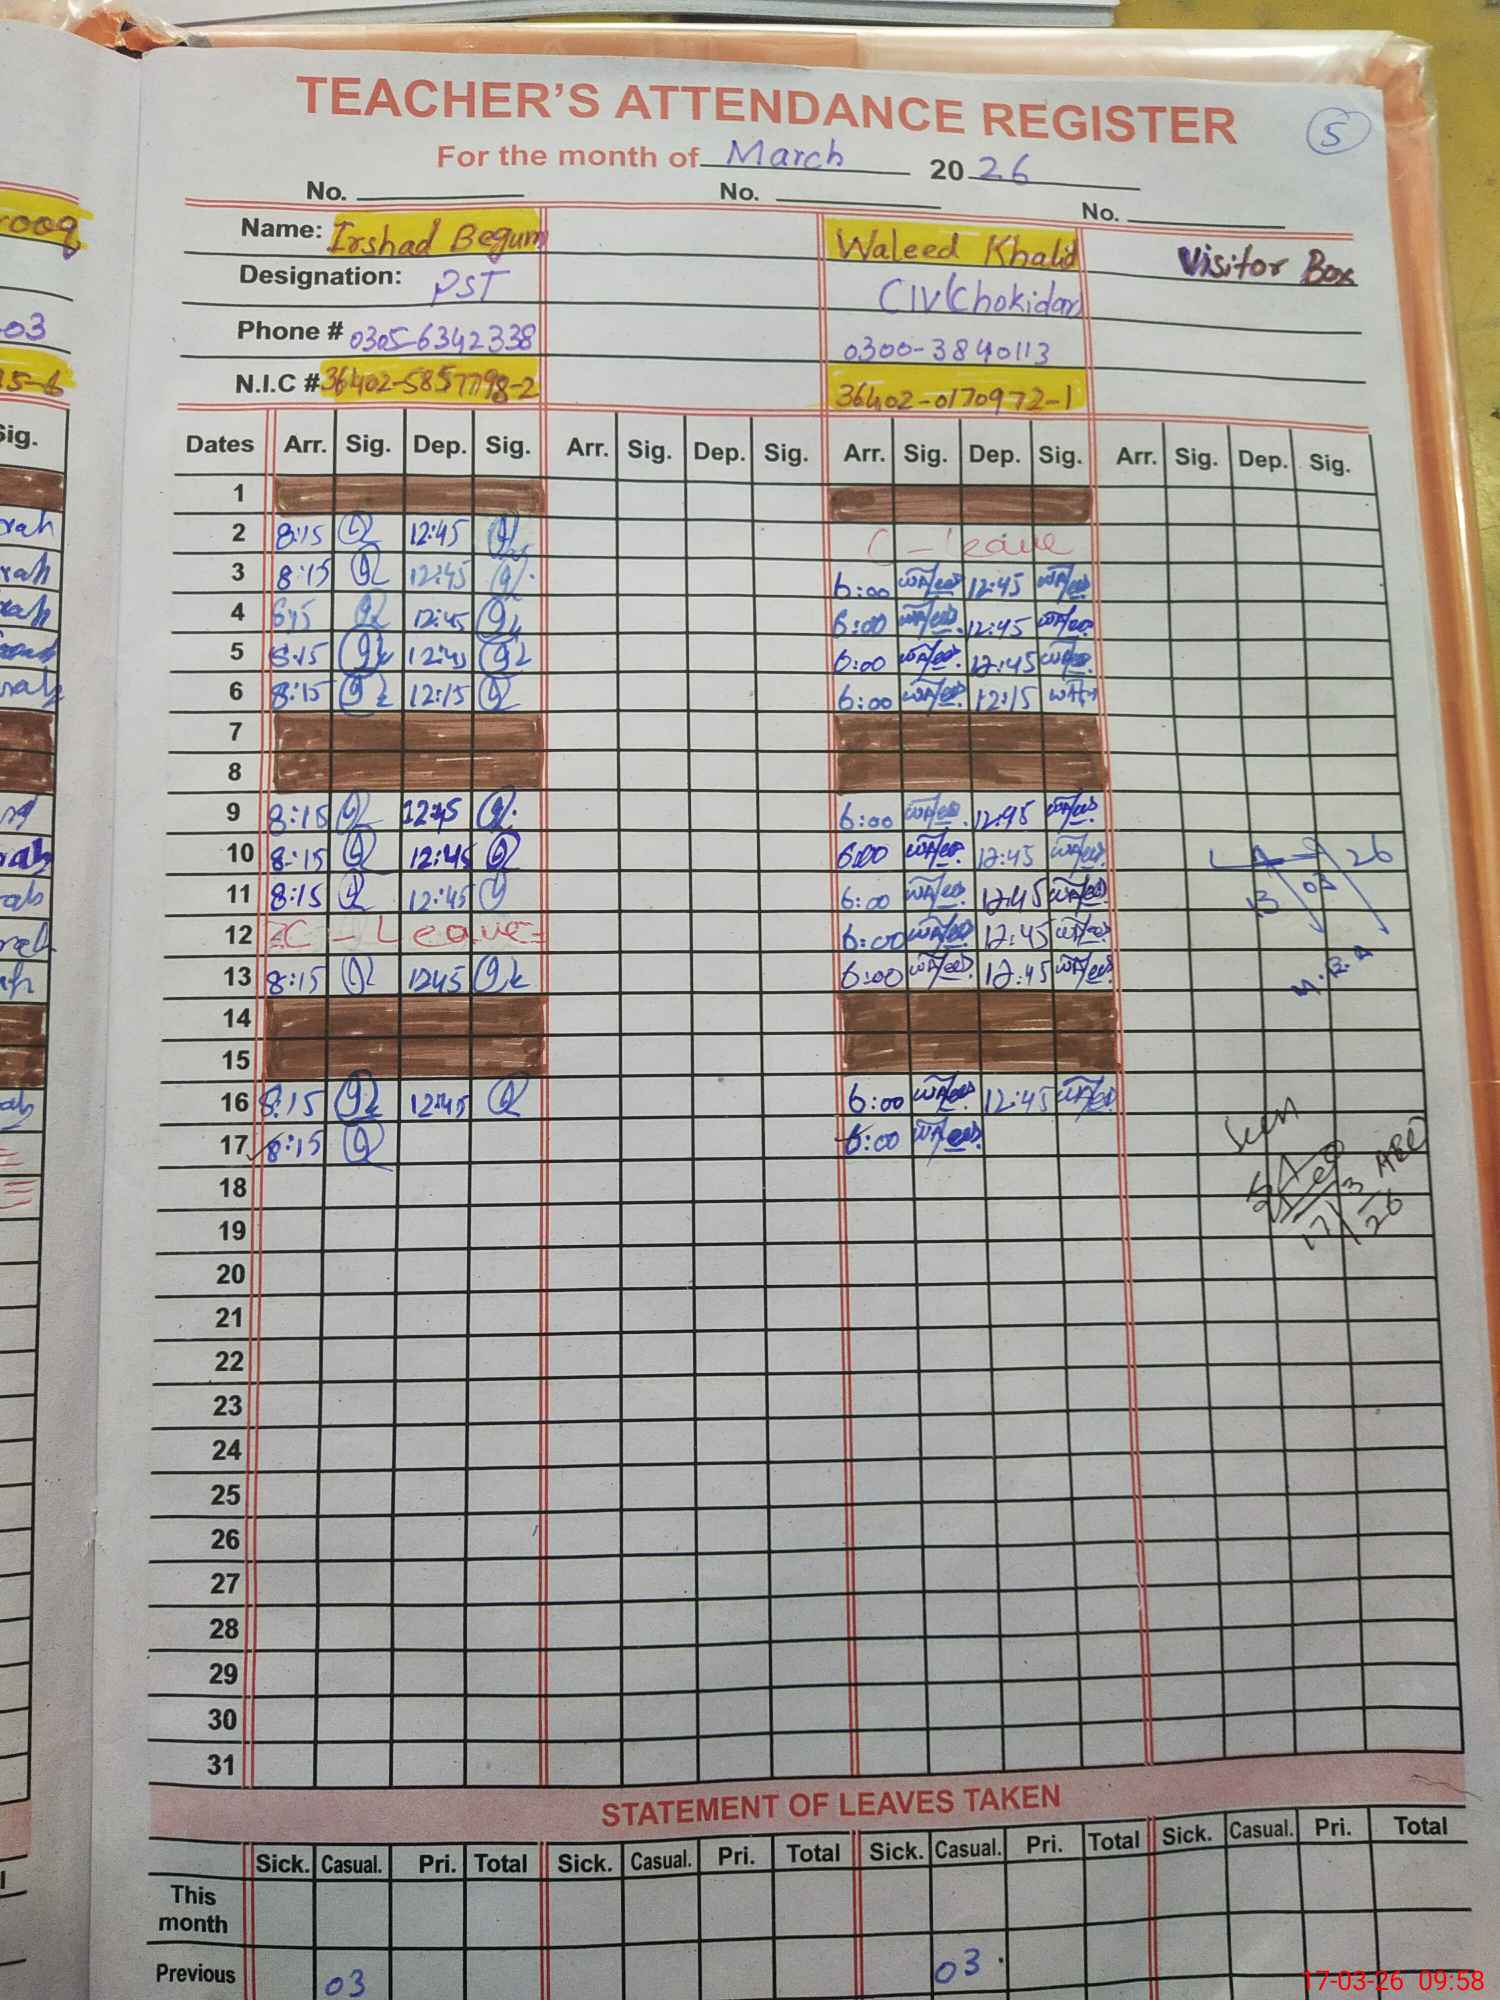 TEACHER'S ATTENDANCE REGISTER
5
For the month of March 2026
No. No. No.
Name: Irshad Begum Waleed Khalid Visitor Box
Designation: PST CIV/Chokidar
Phone # 0305-6342338 0300-3840113
N.I.C # 36402-5857798-2 36402-0170972-1
Dates Arr. Sig. Dep. Sig. Arr. Sig. Dep. Sig. Arr. Sig. Dep. Sig. Arr. Sig. Dep. Sig.
1
2 8:15 12:45 C-Leave
3 8:15 12:45 6:00 Waleed 12:45 Waleed
4 8:15 12:45 6:00 Waleed 12:45 Waleed
5 8:15 12:45 6:00 Waleed 12:45 Waleed
6 8:15 12:15 6:00 Waleed 12:15
7
8
9 8:15 12:45 6:00 Waleed 12:45 Waleed
10 8:15 12:45 6:00 Waleed 12:45 Waleed 26
11 8:15 12:45 6:00 Waleed 12:45 Waleed 13 03
12 C-Leave 6:00 Waleed 12:45 Waleed
13 8:15 12:45 6:00 Waleed 12:45 Waleed
14
15
16 8:15 12:45 6:00 Waleed 12:45 Waleed
Seen
17 8:15 6:00 Waleed
18 17/3/26
19
20
21
22
23
24
25
26
27
28
29
30
31
STATEMENT OF LEAVES TAKEN
Sick. Casual. Pri. Total Sick. Casual. Pri. Total Sick. Casual. Pri. Total Sick. Casual. Pri. Total
This month
Previous 03 03
17-03-26 09:58